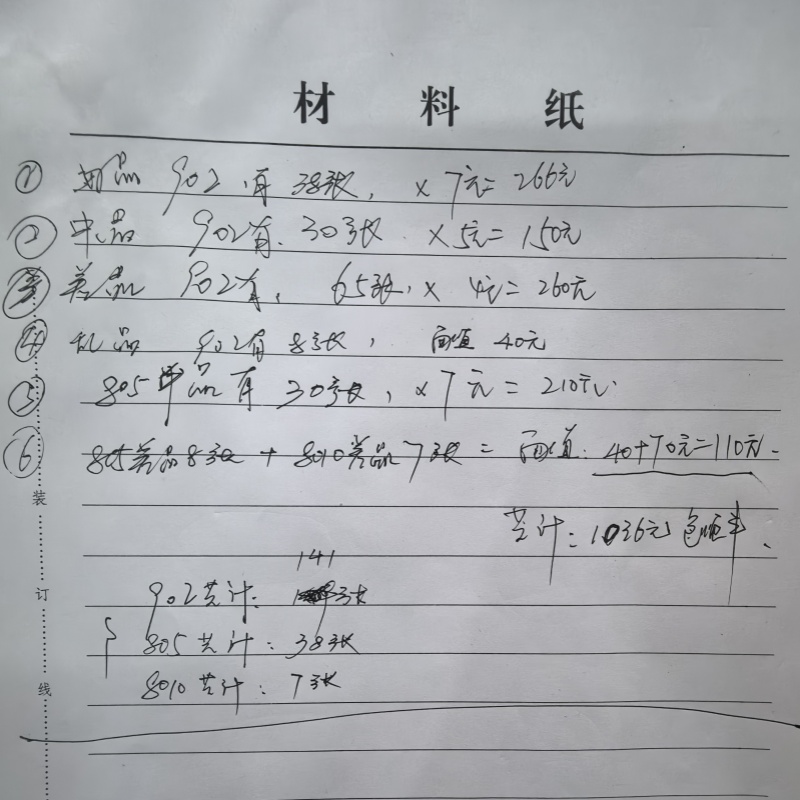 材 料 纸
① 好品 902有 38张, ×7元=266元
② 中品 902有 30张 ×5元=150元
③ 差品 902有, 65张, ×4元=260元
④ 乱品 902有8张, 面值 40元
⑤ 805中品有 30张, ×7元=210元.
⑥ 805差品8张 + 8010差品7张 = 面值: 40+70元=110元.
共计: 1036元包顺丰.
141
902共计: 张
805共计: 38张
8010共计: 7张
装
订
线